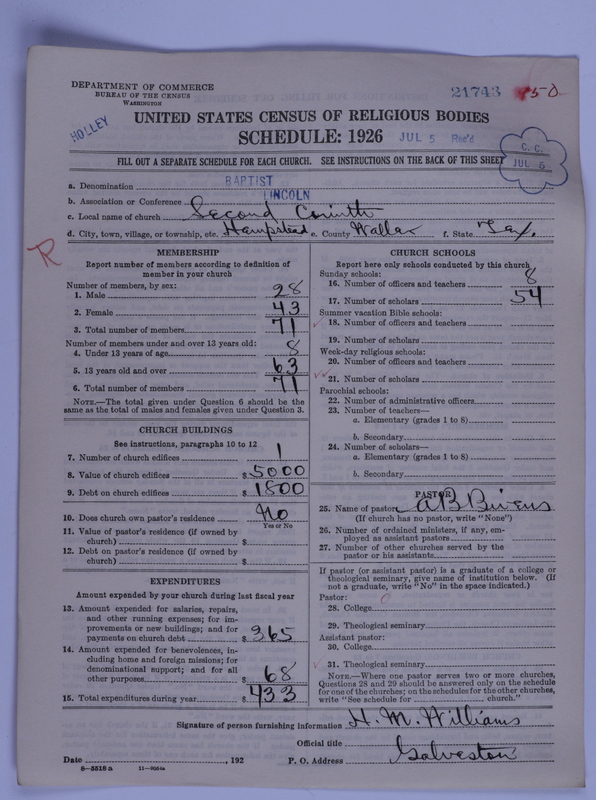 DEPARTMENT OF COMMERCE
BUREAU OF THE CENSUS
WASHINGTON
21743
HOLLEY
UNITED STATES CENSUS OF RELIGIOUS BODIES
SCHEDULE: 1926 JUL 5 Rec'd
C. C.
JUL 5
FILL OUT A SEPARATE SCHEDULE FOR EACH CHURCH. SEE INSTRUCTIONS ON THE BACK OF THIS SHEET
a. Denomination BAPTIST
b. Association or Conference LINCOLN
c. Local name of church Second Corinth
d. City, town, village, or township, etc. Hampstead e. County Waller f. State Tex.
R
MEMBERSHIP
Report number of members according to definition of
member in your church
Number of members, by sex:
1. Male 28
2. Female 43
3. Total number of members 71
Number of members under and over 13 years old:
4. Under 13 years of age 8
5. 13 years old and over 63
6. Total number of members 71
NOTE.—The total given under Question 6 should be
same as the total of males and females given under Question 3.
CHURCH BUILDINGS
See instructions, paragraphs 10 to 12
7. Number of church edifices 1
8. Value of church edifices $5000
9. Debt on church edifices $1800
10. Does church own pastor's residence No
Yes or No
11. Value of pastor's residence (if owned by
church) $
12. Debt on pastor's residence (if owned by
church) $
EXPENDITURES
Amount expended by your church during last fiscal year
13. Amount expended for salaries, repairs,
and other running expenses; for im-
provements or new buildings; and for
payments on church debt $365
14. Amount expended for benevolences, in-
cluding home and foreign missions; for
denominational support; and for all
other purposes $68
15. Total expenditures during year $433
CHURCH SCHOOLS
Report here only schools conducted by this church
Sunday schools:
16. Number of officers and teachers 8
17. Number of scholars 54
Summer vacation Bible schools:
18. Number of officers and teachers
19. Number of scholars
Week-day religious schools:
20. Number of officers and teachers
21. Number of scholars
Parochial schools:
22. Number of administrative officers
23. Number of teachers—
a. Elementary (grades 1 to 8)
b. Secondary
24. Number of scholars—
a. Elementary (grades 1 to 8)
b. Secondary
PASTOR
25. Name of pastor A B Bivens
(If church has no pastor, write "None")
26. Number of ordained ministers, if any, em-
ployed as assistant pastors
27. Number of other churches served by the
pastor or his assistants
If pastor (or assistant pastor) is a graduate of a college or
theological seminary, give name of institution below. (If
not a graduate, write "No" in the space indicated.)
Pastor:
28. College
29. Theological seminary
Assistant pastor:
30. College
31. Theological seminary
NOTE.—Where one pastor serves two or more churches,
Questions 28 and 29 should be answered only on the schedule
for one of the churches; on the schedules for the other churches,
write "See schedule for church."
Signature of person furnishing information H. M. Williams
Official title
Date , 192 P. O. Address Galveston
8-5518 a